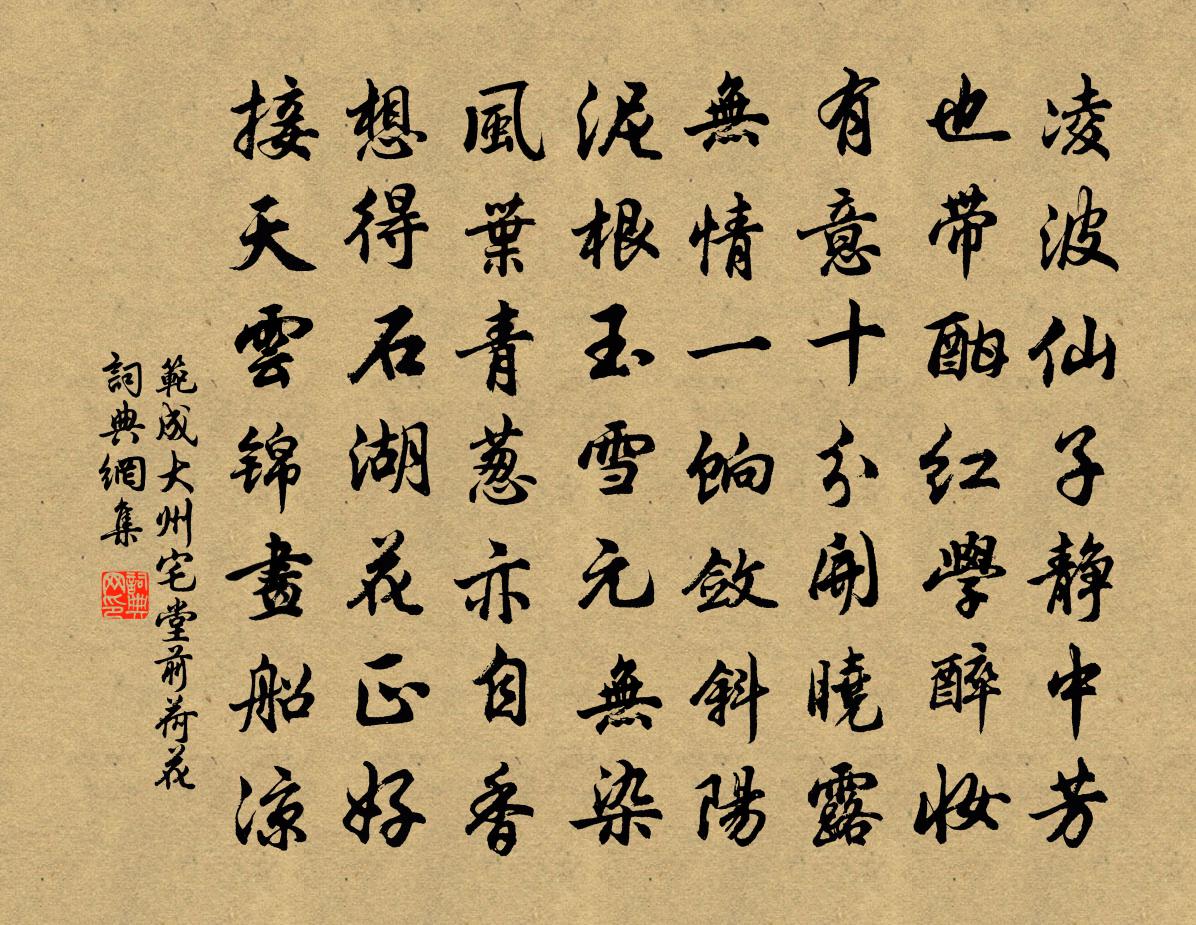 凌波仙子静中芳
也带酣红学醉妆
有意十分開曉露
無情一餉斂斜陽
泥根玉雪元無染
風葉青葱亦自香
想得石湖花正好
接天雲锦畫船凉
範成大州宅堂前荷花
詞典網集
詞典网印